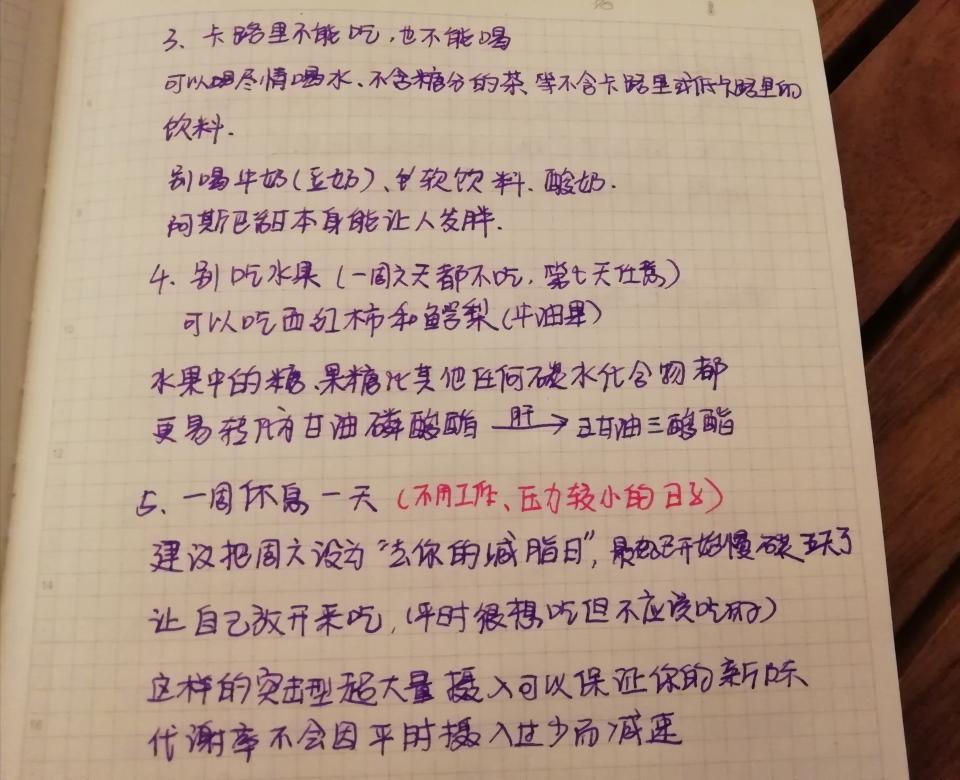 3、卡路里不能吃,也不能喝
可以尽情喝水、不含糖分的茶、等不含卡路里或低卡路里的
饮料.
别喝牛奶(豆奶)、软饮料、酸奶.
阿斯巴甜本身能让人发胖.
4、别吃水果(一周六天都不吃,第七天任意)
可以吃西红柿和鳄梨(牛油果)
水果中的糖、果糖比其他任何碳水化合物都
更易转为甘油磷酸酯 肝→ 甘油三酸酯
5、一周休息一天(不用工作、压力较小的日子)
建议把周六设为“去你的减脂日”,最起码已开始慢碳五天了
让自己放开来吃,(平时很想吃但不应该吃的)
这样的突击型超大量摄入可以保证你的新陈
代谢率不会因平时摄入过少而减速